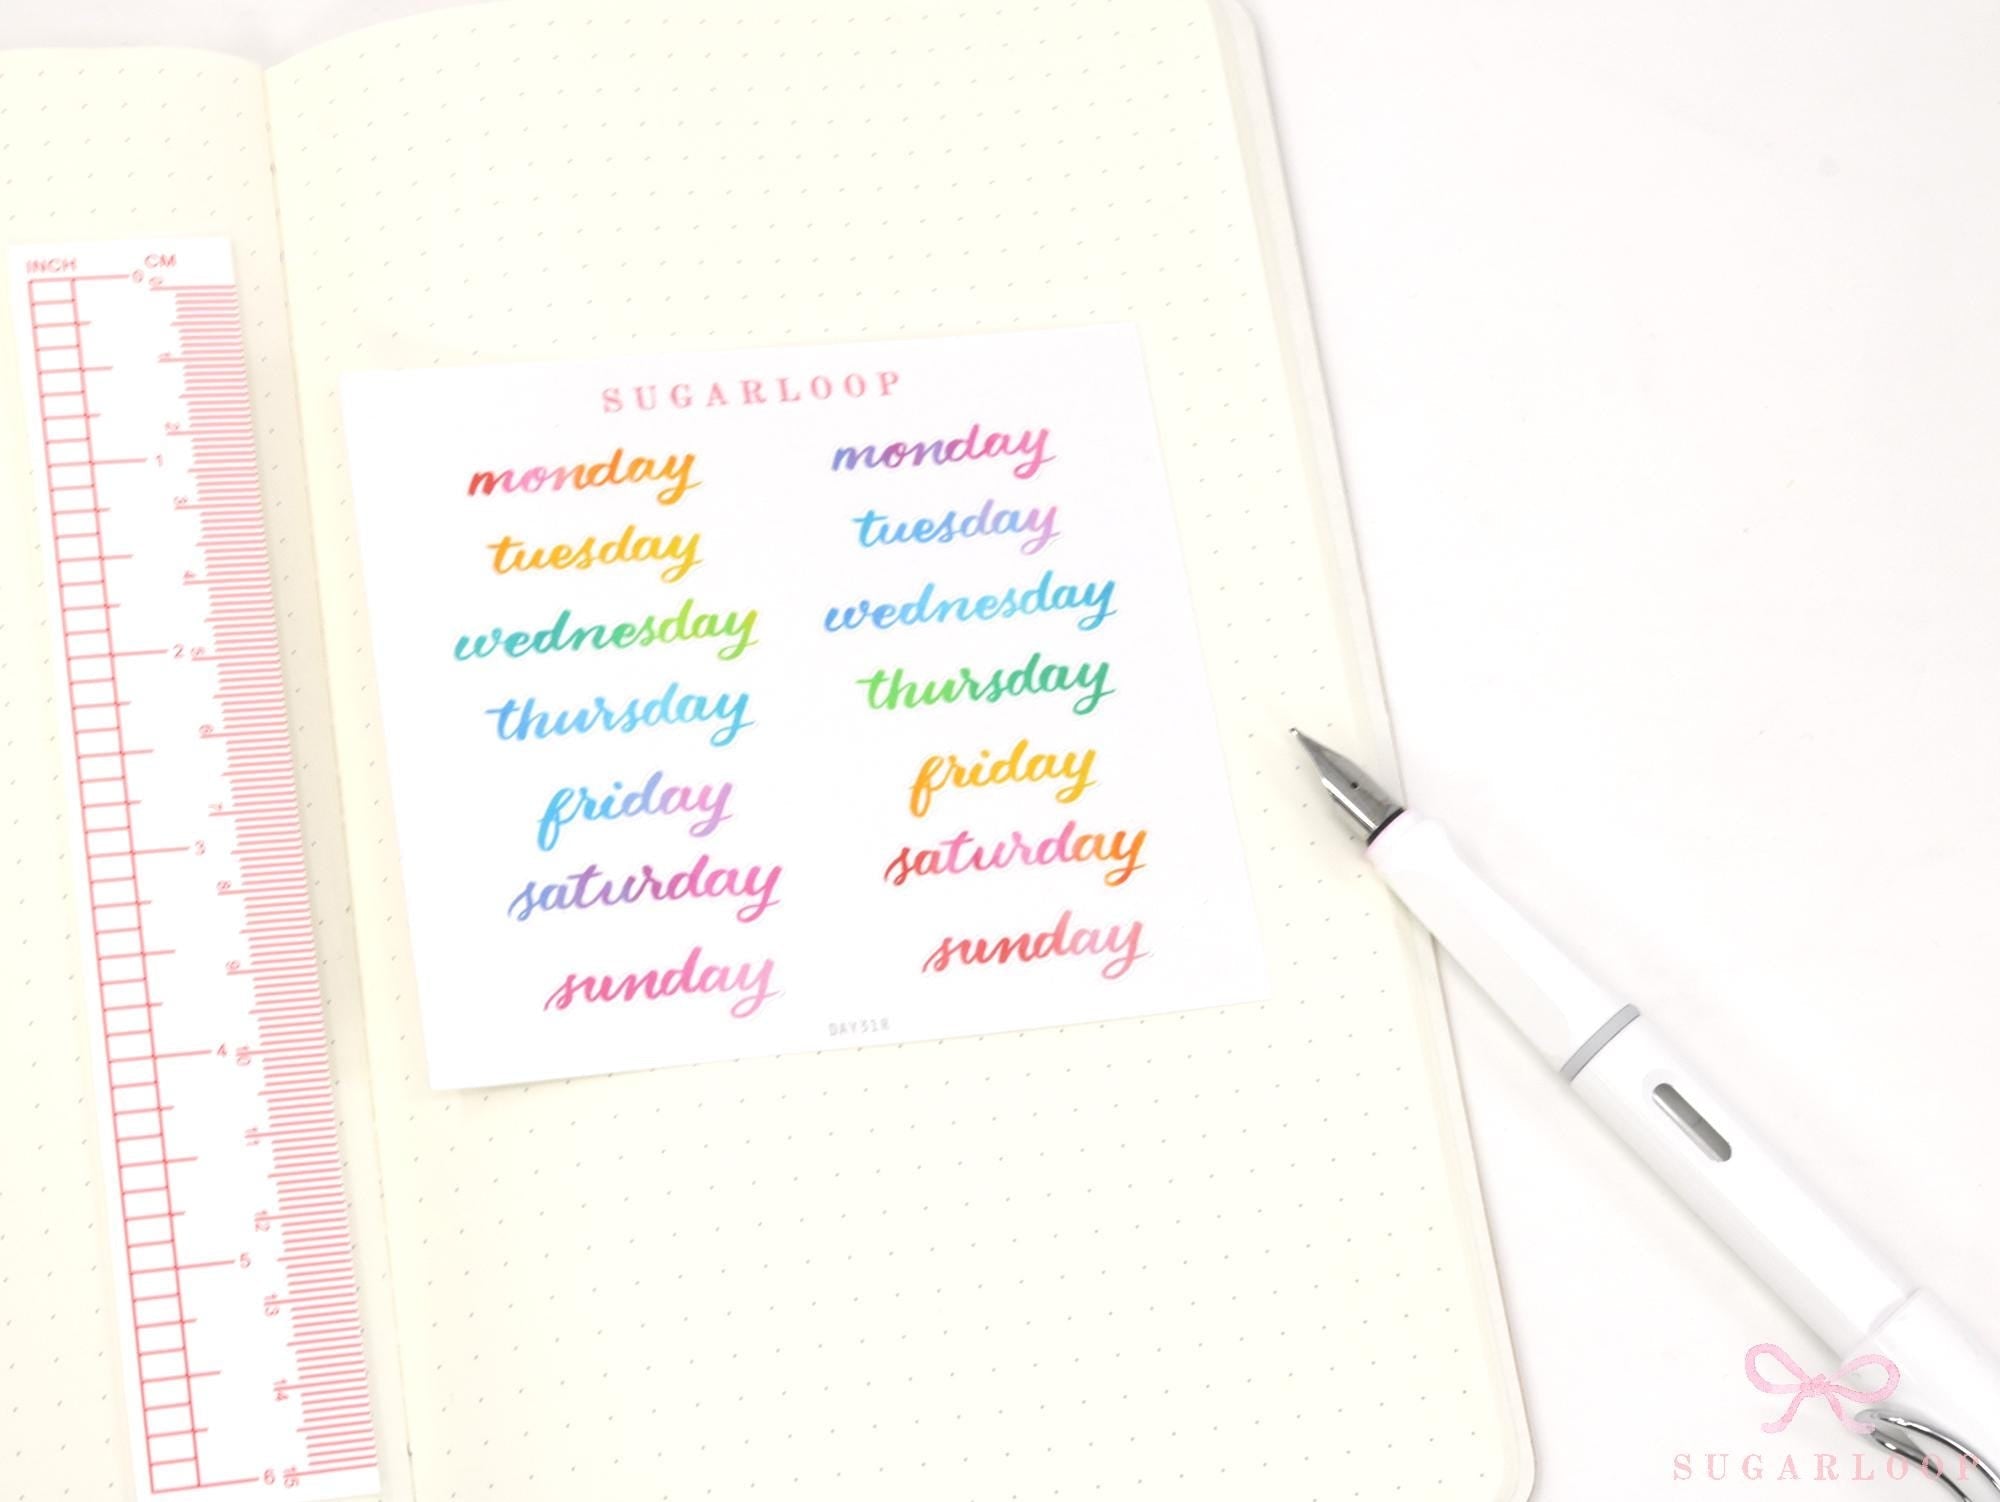 INCH CM
0 0
1
2
1
3
4
2 5
6
7
3
8
9
4 10
11
12
5
13
14
6 15
SUGARLOOP
monday monday
tuesday tuesday
wednesday wednesday
thursday thursday
friday friday
saturday saturday
sunday sunday
DAY31R
SUGARLOOP